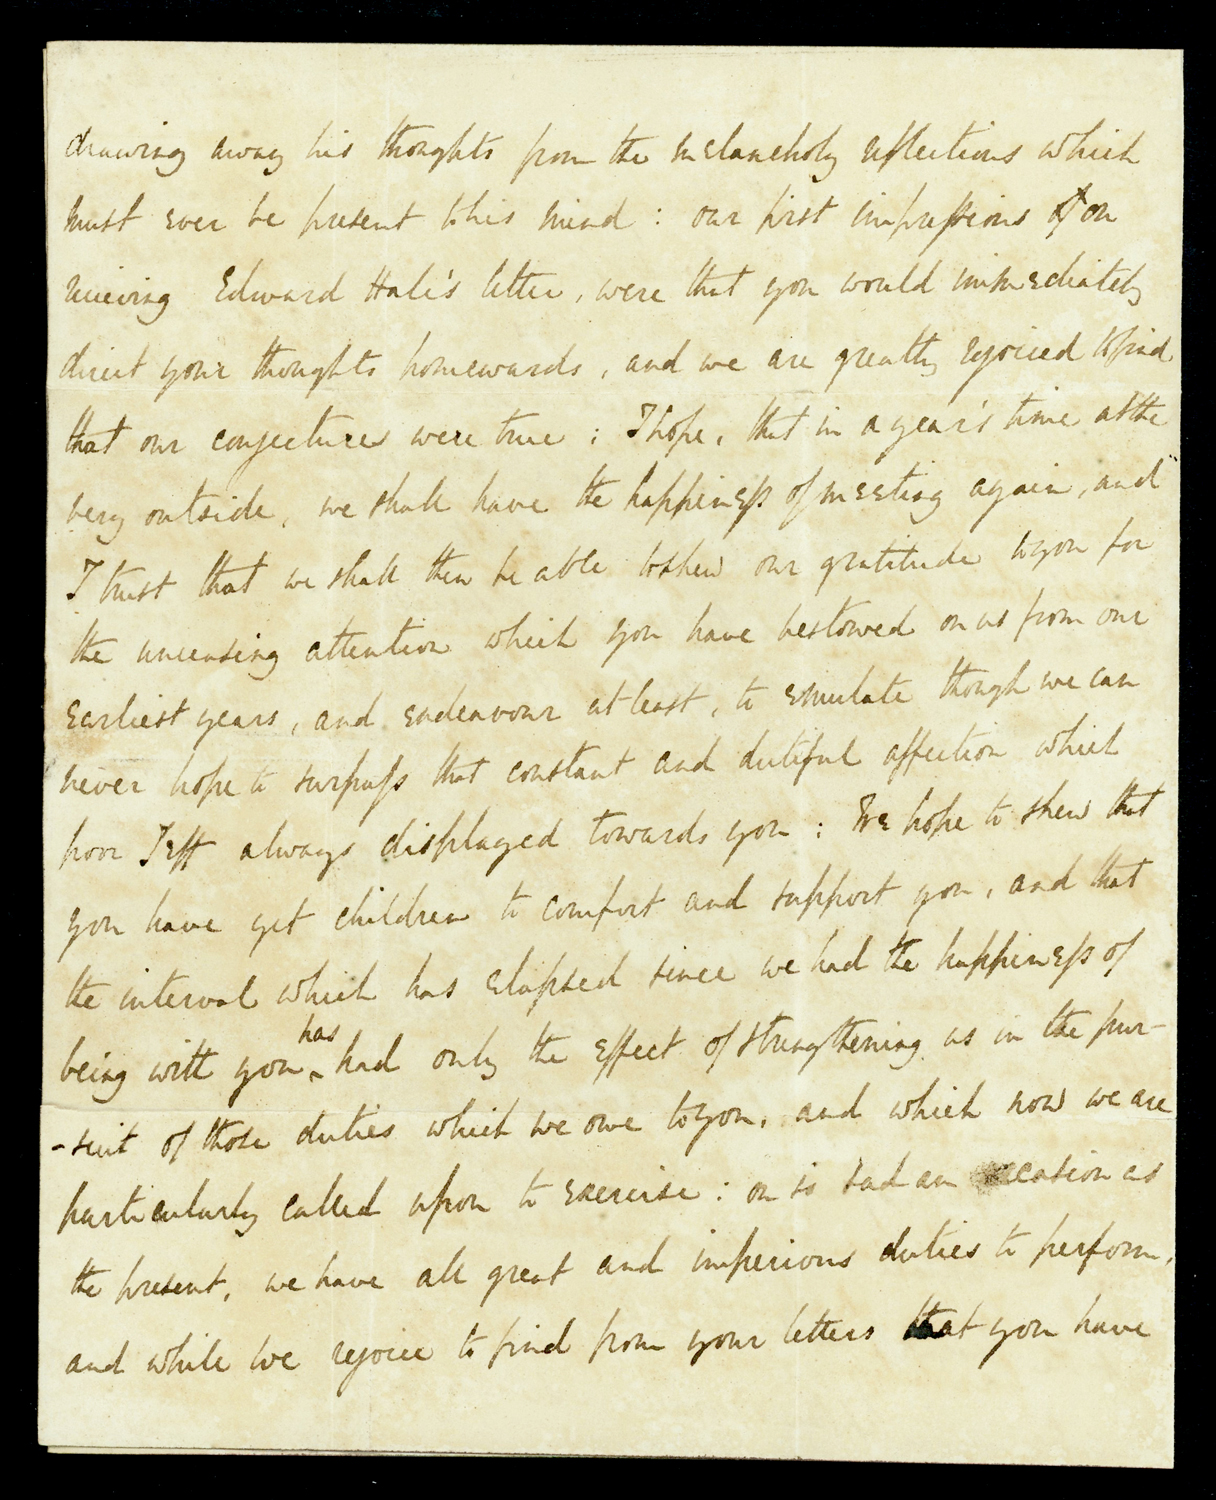 drawing away his thoughts from the melancholy reflections which
must ever be present to his mind : our first impressions of on
recieving Edward Hale's letter, were that you would immediately
direct your thoughts homewards, and we are greatly rejoiced to find
that our conjectures were true ; I hope, that in a year's time at the
very outside, we shall have the happiness of meeting again, and
I trust that we shall then be able to shew our gratitude to you for
the unceasing attention which you have bestowed on us from our
earliest years, and endeavour at least, to emulate though we can
never hope to surpass that constant and dutiful affection which
poor Jeff always displayed towards you : We hope to shew that
you have yet children to comfort and support you, and that
the interval which has elapsed since we had the happiness of
being with you has had only the effect of strengthening us in the pur-
-suit of those duties which we owe to you, and which now we are
particularly called upon to exercise : on so sad an occasion as
the present, we have all great and imperious duties to perform,
and while we rejoice to find from your letters that you have